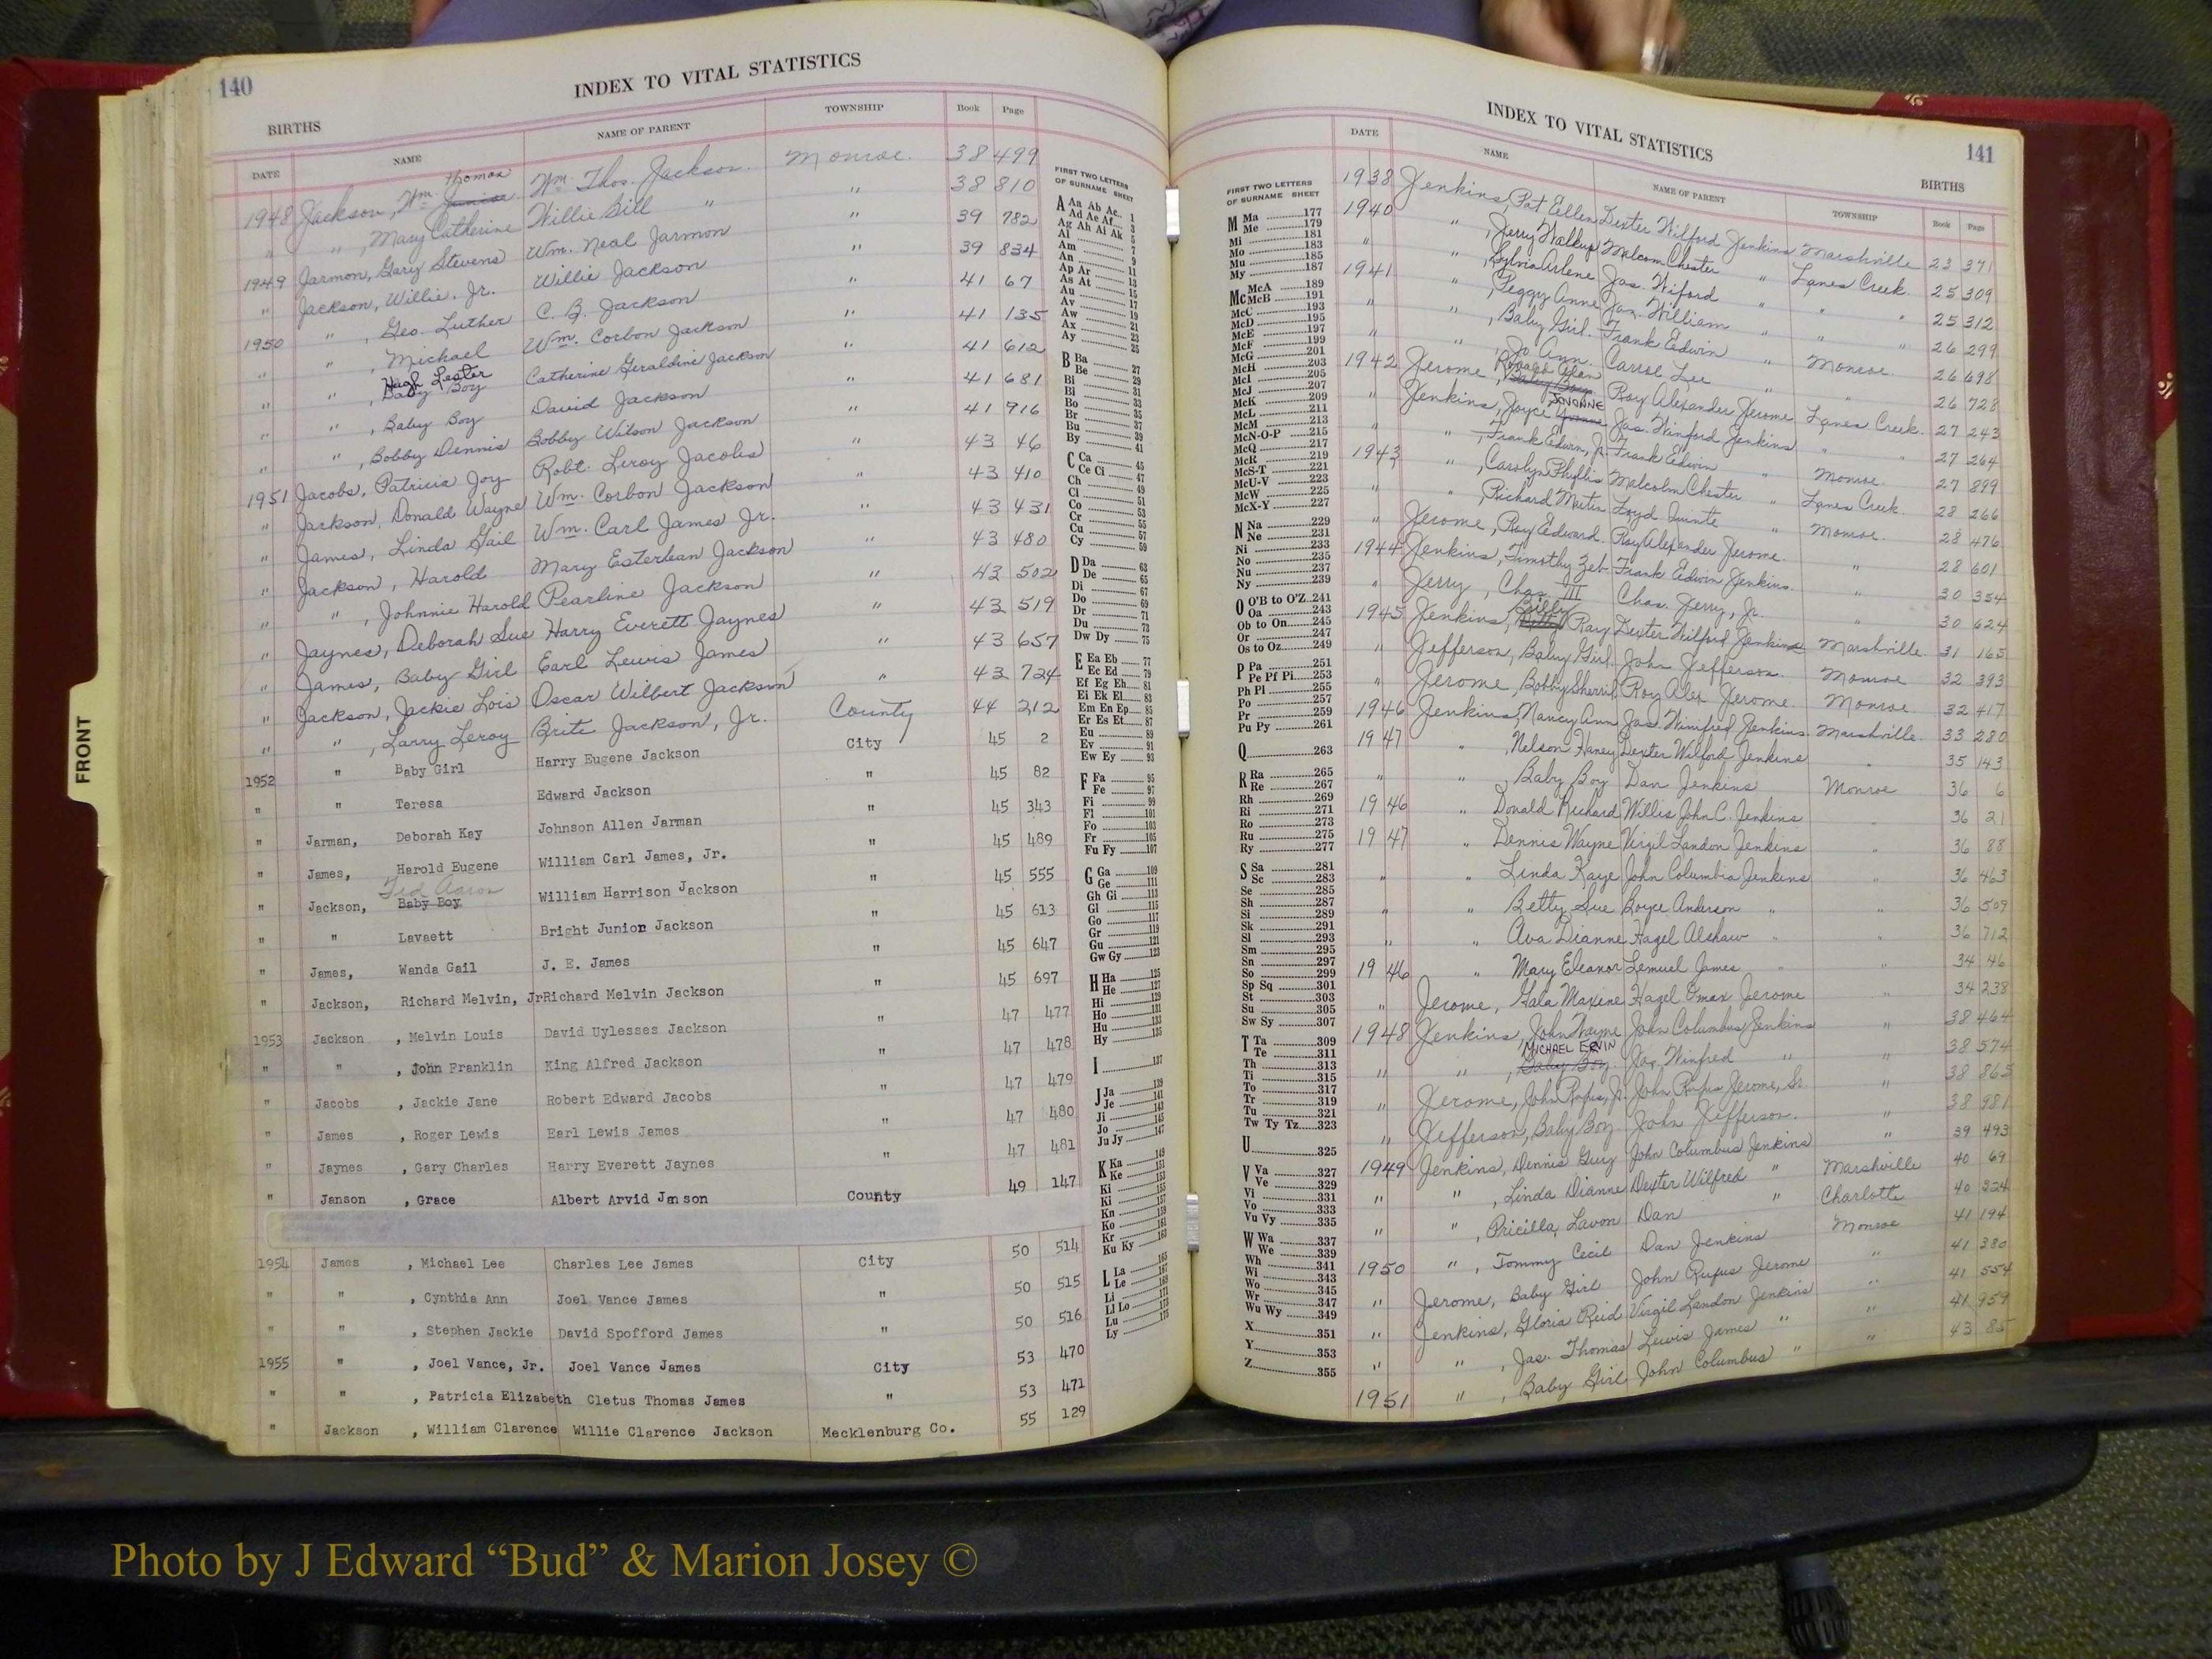 140
INDEX TO VITAL STATISTICS
BIRTHS
DATE NAME NAME OF PARENT TOWNSHIP Book Page
1948 Jackson, Wm. Thomas Wm. Thos. Jackson Monroe. 38 499
" " , Mary Catherine Willie Bill " " 38 810
1949 Jarmon, Gary Stevens Wm. Neal Jarmon " 39 782
" Jackson, Willie, Jr. Willie Jackson " 39 834
1950 " , Geo. Luther C. B. Jackson " 41 67
" " , Michael Wm. Corbon Jackson " 41 135
" " , Hugh Lester Baby Boy Catherine Geraldine Jackson " 41 612
" " , Baby Boy David Jackson " 41 681
" " , Bobby Dennis Bobby Wilson Jackson " 41 916
1951 Jacobs, Patricia Joy Robt. Leroy Jacobs " 43 46
" Jackson, Donald Wayne Wm. Corbon Jackson " 43 410
" James, Linda Gail Wm. Carl James Jr. " 43 431
" Jackson, Harold Mary Esterlean Jackson " 43 480
" " , Johnnie Harold Pearline Jackson " 43 502
" Jaynes, Deborah Sue Harry Everett Jaynes " 43 519
" James, Baby Girl Earl Lewis James " 43 657
" Jackson, Jackie Lois Oscar Wilbert Jackson " 43 724
" " , Larry Leroy Brite Jackson, Jr. County 44 212
1952 " Baby Girl Harry Eugene Jackson City 45 2
" " Teresa Edward Jackson " 45 82
" Jarman, Deborah Kay Johnson Allen Jarman " 45 343
" James, Harold Eugene William Carl James, Jr. " 45 489
" Jackson, Ted Aaron Baby Boy William Harrison Jackson " 45 555
" " Lavaett Bright Junior Jackson " 45 613
" James, Wanda Gail J. E. James " 45 647
" Jackson, Richard Melvin, Jr Richard Melvin Jackson " 45 697
1953 Jackson , Melvin Louis David Uylesses Jackson " 47 477
" " , John Franklin King Alfred Jackson " 47 478
" Jacobs , Jackie Jane Robert Edward Jacobs " 47 479
" James , Roger Lewis Earl Lewis James " 47 480
" Jaynes , Gary Charles Harry Everett Jaynes " 47 481
" Janson , Grace Albert Arvid Janson County 49 147
1954 James , Michael Lee Charles Lee James City 50 514
" " , Cynthia Ann Joel Vance James " 50 515
" " , Stephen Jackie David Spofford James " 50 516
1955 " , Joel Vance, Jr. Joel Vance James City 53 470
" " , Patricia Elizabeth Cletus Thomas James " 53 471
" Jackson , William Clarence Willie Clarence Jackson Mecklenburg Co. 55 129
FIRST TWO LETTERS
OF SURNAME SHEET
A Aa Ab Ac 1
Ad Ae Af 3
Ag Ah Ai Ak 5
Al 7
Am 9
An 11
Ap Ar 13
As At 15
Au 17
Av 19
Aw 21
Ax 23
Ay 25
B Ba 27
Be 29
Bi 31
Bl 33
Bo 35
Br 37
Bu 39
By 41
C Ca 45
Ce Ci 47
Ch 49
Cl 51
Co 53
Cr 55
Cu 57
Cy 59
D Da 63
De 65
Di 67
Do 69
Dr 71
Du 73
Dw Dy 75
E Ea Eb 77
Ec Ed 79
Ef Eg Eh 81
Ei Ek El 83
Em En Ep 85
Er Es Et 87
Eu 89
Ev 91
Ew Ey 93
F Fa 95
Fe 97
Fi 99
Fl 101
Fo 103
Fr 105
Fu Fy 107
G Ga 109
Ge 111
Gh Gi 113
Gl 115
Go 117
Gr 119
Gu 121
Gw Gy 123
H Ha 125
He 127
Hi 129
Ho 131
Hu 133
Hy 135
I 137
J Ja 139
Je 141
Ji 143
Jo 145
Ju Jy 147
K Ka 149
Ke 151
Ki 153
Kl 155
Kn 157
Ko 159
Kr 161
Ku Ky 163
L La 165
Le 167
Li 169
Ll Lo 171
Lu 173
Ly 175
141
INDEX TO VITAL STATISTICS
BIRTHS
FIRST TWO LETTERS
OF SURNAME SHEET
M Ma 177
Me 179
Mi 181
Mo 183
Mu 185
My 187
Mc McA 189
McB 191
McC 193
McD 195
McE 197
McF 199
McG 201
McH 203
McI 205
McJ 207
McK 209
McL 211
McM 213
McN-O-P 215
McQ 217
McR 219
McS-T 221
McU-V 223
McW 225
McX-Y 227
N Na 229
Ne 231
Ni 233
No 235
Nu 237
Ny 239
O O'B to O'Z 241
Oa 243
Ob to On 245
Or 247
Os to Oz 249
P Pa 251
Pe Pf Pi 253
Ph Pl 255
Po 257
Pr 259
Pu Py 261
Q 263
R Ra 265
Re 267
Rh 269
Ri 271
Ro 273
Ru 275
Ry 277
S Sa 281
Sc 283
Se 285
Sh 287
Si 289
Sk 291
Sl 293
Sm 295
Sn 297
So 299
Sp Sq 301
St 303
Su 305
Sw Sy 307
T Ta 309
Te 311
Th 313
Ti 315
To 317
Tr 319
Tu 321
Tw Ty Tz 323
U 325
V Va 327
Ve 329
Vi 331
Vo 333
Vu Vy 335
W Wa 337
We 339
Wh 341
Wi 343
Wo 345
Wr 347
Wu Wy 349
X 351
Y 353
Z 355
DATE NAME NAME OF PARENT TOWNSHIP Book Page
1938 Jenkins, Pat Eellen Dexter Wilford Jenkins Marshville 23 371
1940 " , Jerry Walkup Malcom Chester " Lanes Creek. 25 309
" " , Sylvia Arlene Jas. Wiford " " " 25 312
1941 " , Peggy Anne Jas. William " " " 26 299
" " , Baby Girl Frank Edwin " Monroe. 26 698
" " , Jo Ann Carrol Lee " " 26 728
1942 Jerome, Ronald Alan Baby Boy Roy Alexander Jerome Lanes Creek. 27 243
" Jenkins, Joyce JVONNE Jas. Winford Jenkins " " 27 264
" " , Frank Edwin, Jr. Frank Edwin " Monroe. 27 899
1943 " , Carolyn Phyllis Malcolm Chester " Lanes Creek. 28 266
" " , Richard Martin Loyd Quinte " Monroe. 28 476
" Jerome, Roy Edward. Roy Alexander Jerome. " 28 601
1944 Jenkins, Timothy Zeb Frank Edwin Jenkins. " 30 354
" Jerry, Chas. III Chas. Jerry, Jr. " 30 624
1945 Jenkins, Billy Ray Dexter Wilford Jenkins Marshville. 31 165
" Jefferson, Baby Girl John Jefferson. Monroe 32 393
" Jerome, Bobby Sherril Roy Alex Jerome. Monroe. 32 417
1946 Jenkins, Nancy Ann Jas. Winifred Jenkins Marshville. 33 280
1947 " , Nelson Haney Dexter Wilford Jenkins " 35 143
" " , Baby Boy Dan Jenkins Monroe 36 6
1946 " Donald Richard Willis John C. Jenkins " 36 21
1947 " Dennis Wayne Virgil Landon Jenkins " 36 88
" " Linda Kaye John Columbia Jenkins " 36 463
" " Betty Sue Boyce Anderson " " 36 509
" " Ava Dianne Hazel Alshaw " " 36 712
1946 " Mary Eleanor Lemuel James " " 34 46
" Jerome, Gala Maxine Hazel Omax Jerome " 34 238
1948 Jenkins, John Wayne John Columbus Jenkins " 38 464
" " , MICHAEL ERVIN Baby Boy Jas. Winfred " " 38 574
" Jerome, John Rufus, Jr. John Rufus Jerome, Sr. " 38 865
" Jefferson, Baby Boy John Jefferson. " 38 981
1949 Jenkins, Dennis Guy John Columbus Jenkins " 39 493
" " , Linda Dianne Dexter Wilfred " Marshville 40 69
" " , Pricilla Lavon Dan " Charlotte 40 324
1950 " , Tommy Cecil Dan Jenkins Monroe 41 194
" Jerome, Baby Girl John Rufus Jerome " 41 380
" Jenkins, Gloria Reid Virgil Landon Jenkins " 41 554
" " , Jas. Thomas Lewis James " " 41 959
1951 " , Baby Girl John Columbus " " 43 85
FRONT
Photo by J Edward “Bud” & Marion Josey ©